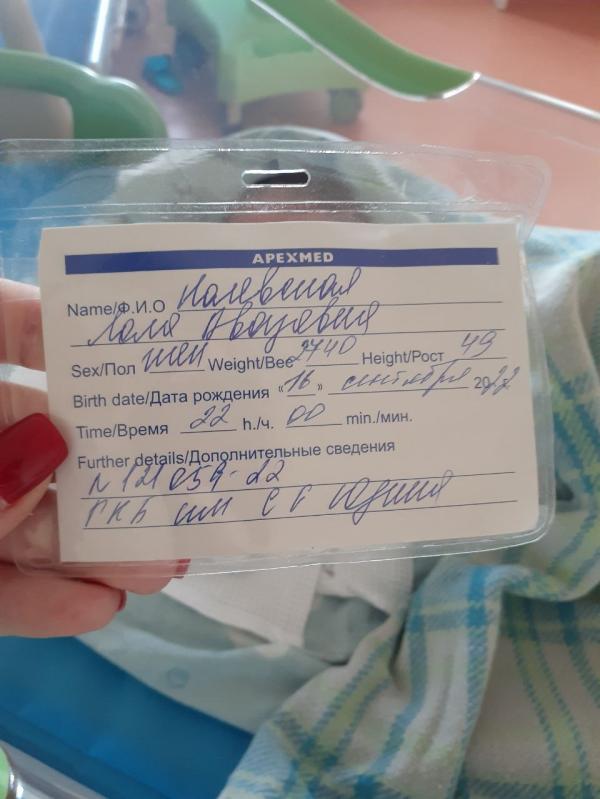 APEXMED
Name/Ф.И.О
Лоля
Sex/Пол жен Weight/Вес 2440 Height/Рост 49
Birth date/Дата рождения «16» сентября 2022
Time/Время 22 h./ч. 00 min./мин.
Further details/Дополнительные сведения
N 121059-22
ГКБ им С С Юдина